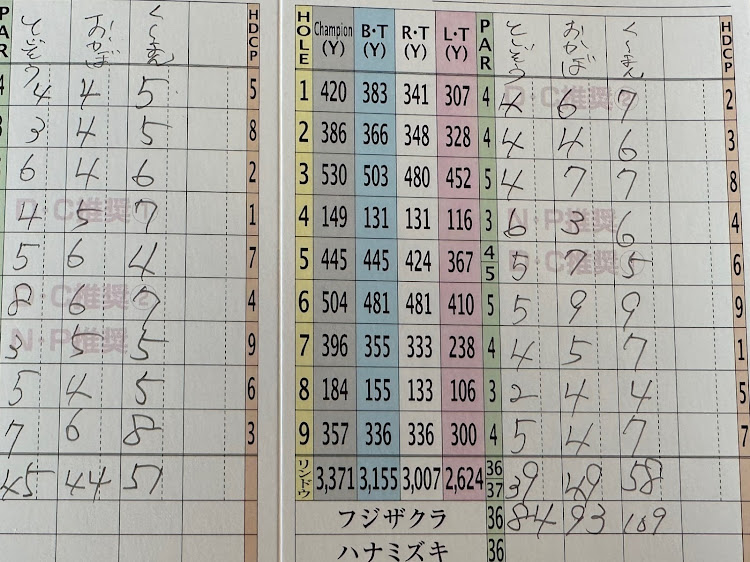 PAR とじぞう おかば く〜まん HDCP
4 4 4 5 5
3 4 5 8
6 4 6 2
4 5 7 1
5 6 4 7
8 6 7 4
5 5 5 9
5 4 5 6
7 6 8 3
45 44 51
D・C推奨①
D・C推奨②
N・P推奨
HOLE Champion (Y) B・T (Y) R・T (Y) L・T (Y) PAR とじぞう おかば く〜まん HDCP
1 420 383 341 307 4 4 6 7 2
2 386 366 348 328 4 4 4 6 3
3 530 503 480 452 5 4 7 7 8
4 149 131 131 116 3 6 3 6 4
5 445 445 424 367 4/5 5 7 5 6
6 504 481 481 410 5 5 9 9 9
7 396 355 333 238 4 4 5 7 1
8 184 155 133 106 3 2 4 4 5
9 357 336 336 300 4 5 4 7 7
リンドウ 3,371 3,155 3,007 2,624 36/37 39 49 58
フジザクラ 36 84 93 109
ハナミズキ 36
N・P推奨